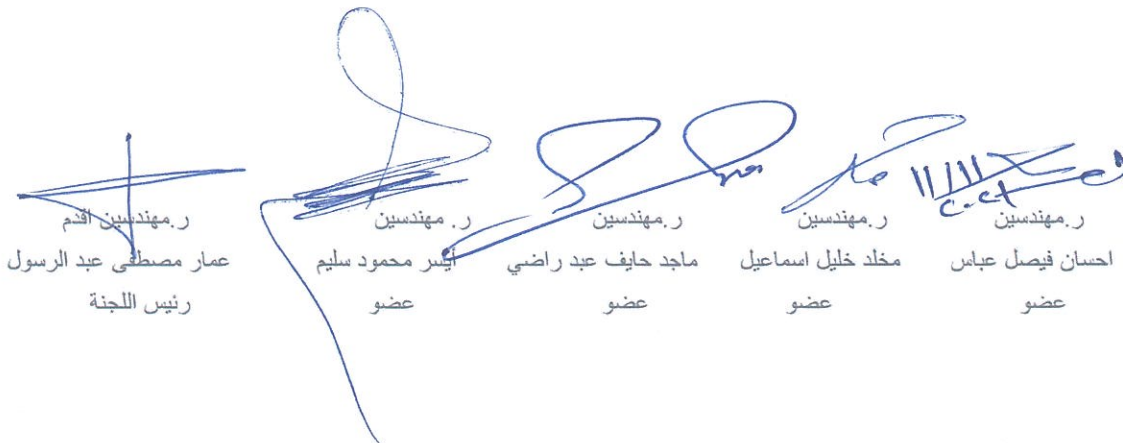 ١١/١١
ر.مهندسين
احسان فيصل عباس
عضو
ر.مهندسين
مخلد خليل اسماعيل
عضو
ر.مهندسين
ماجد حايف عبد راضي
عضو
ر.مهندسين
أيسر محمود سليم
عضو
ر.مهندسين اقدم
عمار مصطفى عبد الرسول
رئيس اللجنة